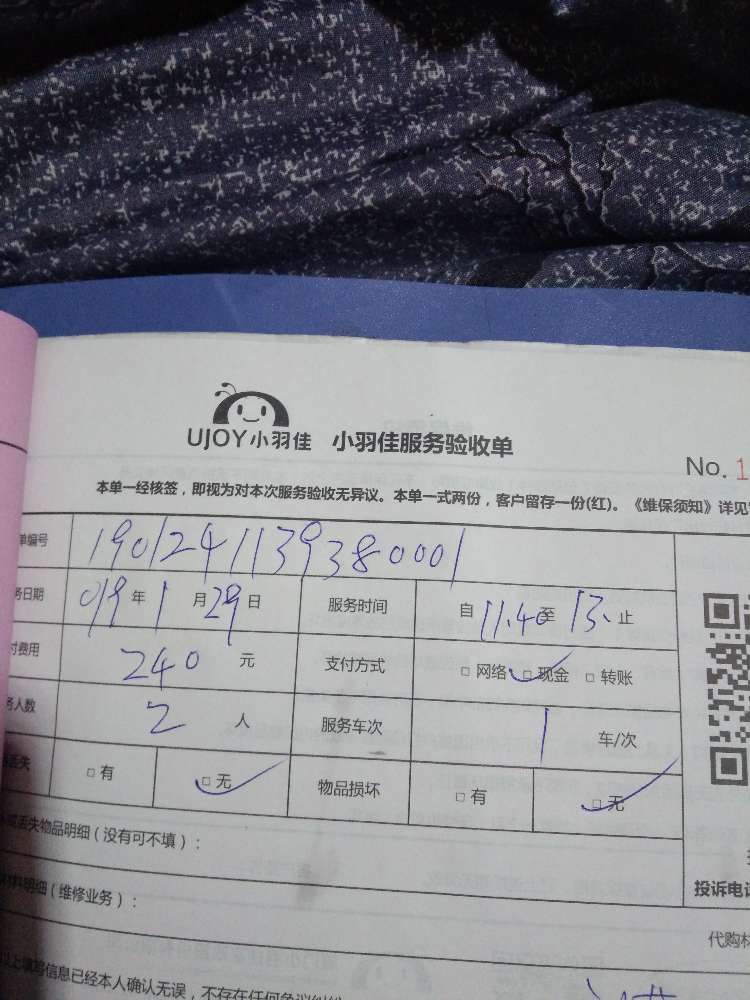 UJOY小羽佳 小羽佳服务验收单
No. 1
本单一经核签，即视为对本次服务验收无异议。本单一式两份，客户留存一份(红)。《维保须知》详见
单编号 1901241139380001
务日期 019年1月29日 服务时间 自11.40至13.止
付费用 240元 支付方式 □网络 ☑现金 □转账
务人数 2人 服务车次 1车/次
丢失 □有 ☑无 物品损坏 □有 ☑无
或丢失物品明细（没有可不填）：
材料明细（维修业务）：
投诉电话
代购材
以上填写信息已经本人确认无误，不存在任何争议纠纷